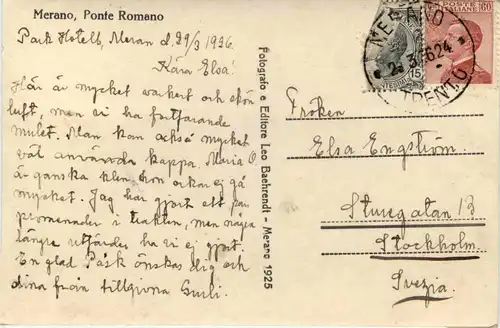 Merano, Ponte Romano
Park Hotell, Meran d. 29/3 1926.
Kära Elsa!
Här är mycket vackert och skön
luft, men vi ha fortfarande
mulet. Man kan också mycket
väl använda kappa. Maria
är ganska klen, hon orkar ej gå
mycket. Jag har gjort ett par
promenader i trakten, men några
längre utfärder ha vi ej gjort.
En glad Påsk önskas dig och
dina från tillgivna Guli.
Fotografo e Editore Leo Baehrendt - Merano 1925
POSTE ITALIANE
15
60
MERANO
TRENTO
Fröken
Elsa Engström.
Sturegatan 13
Stockholm.
Svezia.